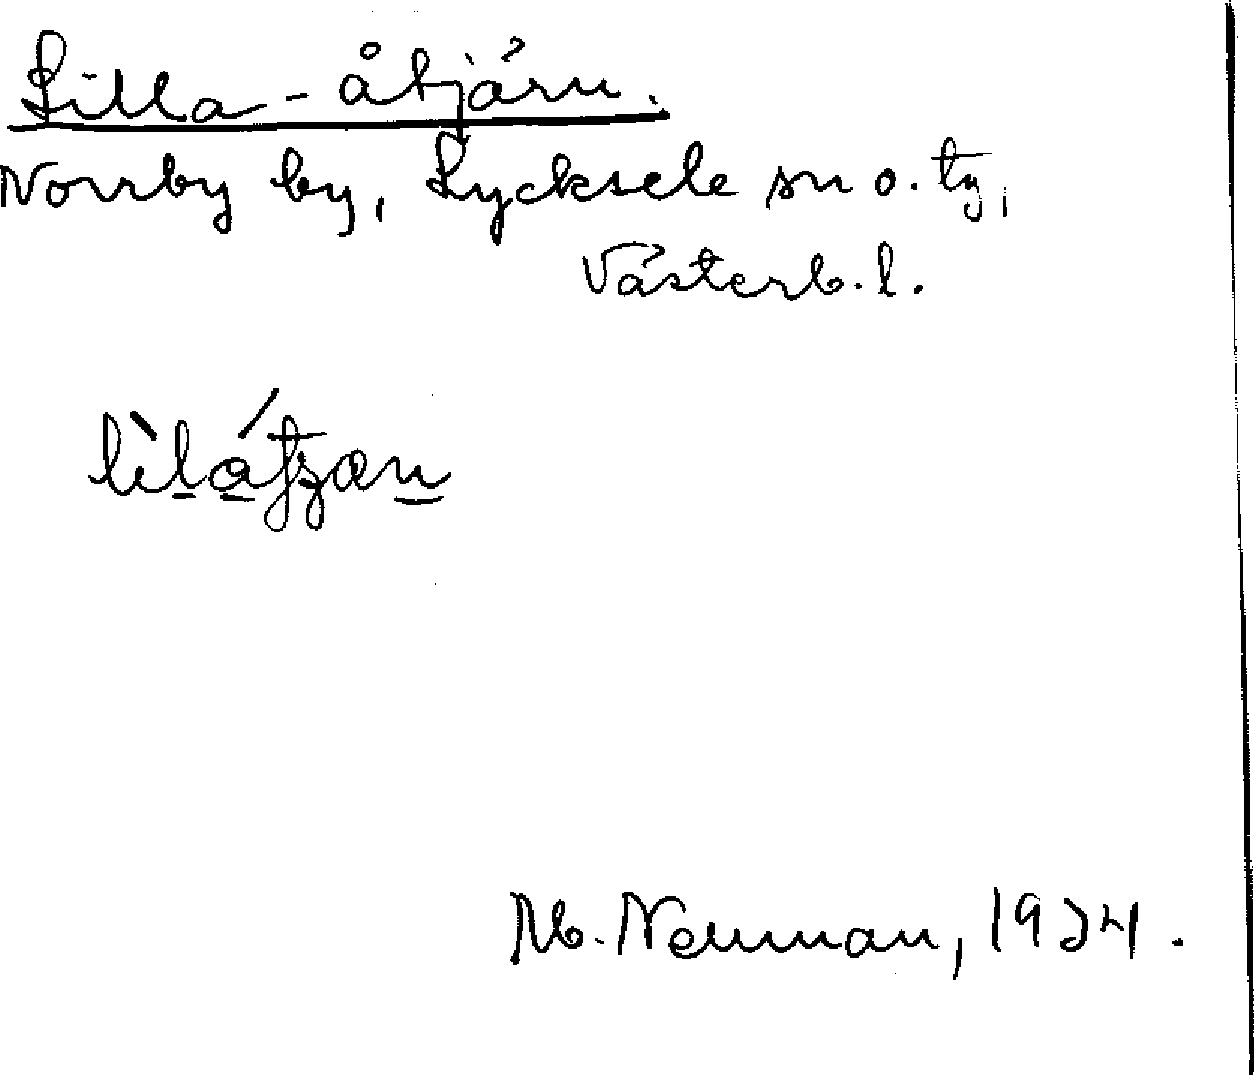 Lilla-åtjärn.
Norrby by, Lycksele sn o. tg,
Västerb. l.
M. Neuman, 1924.